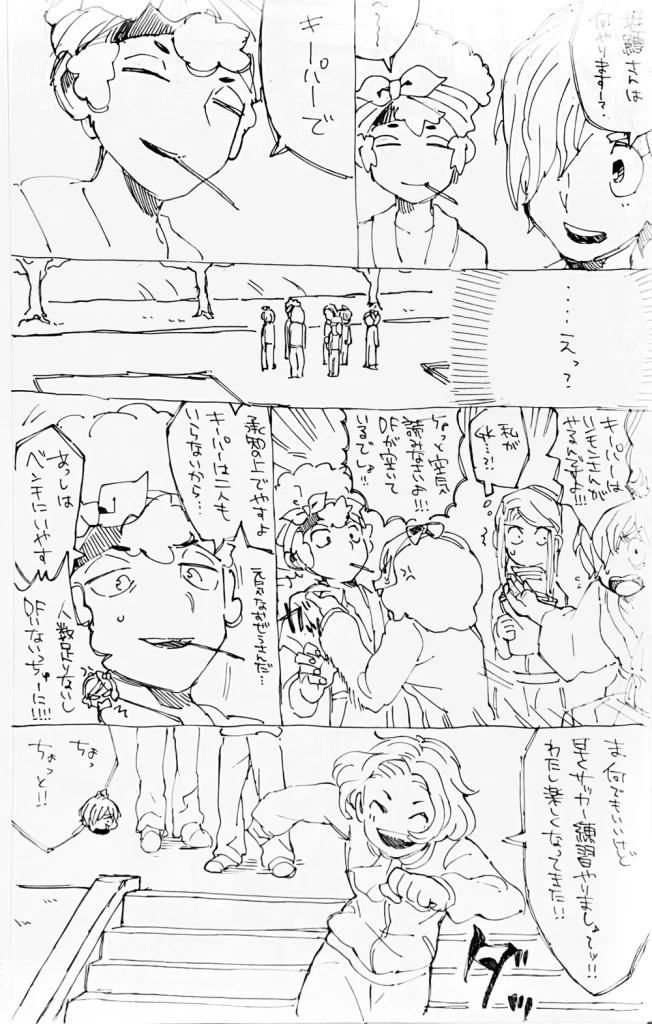 さんは
何やります?
〜〜
キーパーで
‥‥えっ?
キーパーは
イモンさんが
やるんですよ!!!
私が
GK…?!
ちょっと空気
読みなさいよ!!!
DFが空いて
いるでしょ!!
承知の上でやすよ
キーパーは二人も
いらないから…
元気なおじょうさんだ…
あっしは
ベンチにいやす
人数足りないし
DFいないっちゅーに!!!!
ま、何でもいいけど
早くサッカー練習やりましょーッ!!
わたし楽しくなってきた!!
ちょっ
ちょっと!!
ダッ